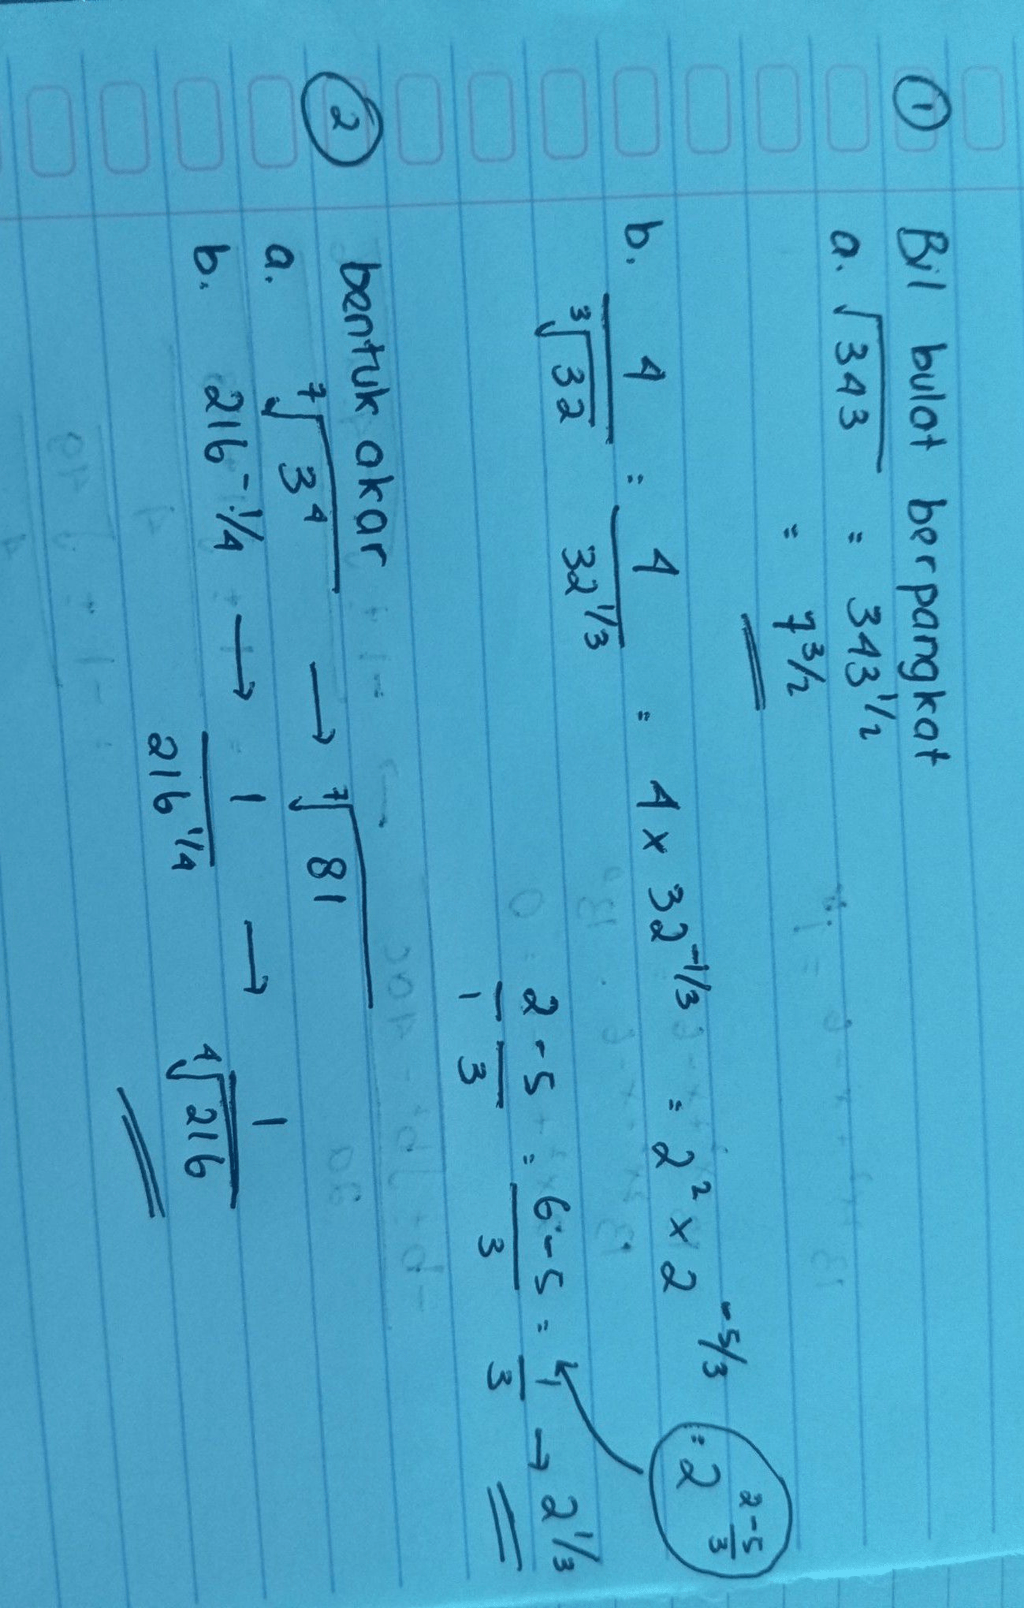 ① Bil bulat berpangkat
a. √343 = 343^1/2
= 7^3/2
b. 4/∛32 = 4/32^1/3 = 4 × 32^-1/3 = 2^2 × 2^-5/3 = 2^(2-5/3)
2/1 - 5/3 = 6-5/3 = 1/3 → 2^1/3
② bentuk akar
a. ⁷√3^4 → ⁷√81
b. 216^-1/4 → 1/216^1/4 → 1/⁴√216